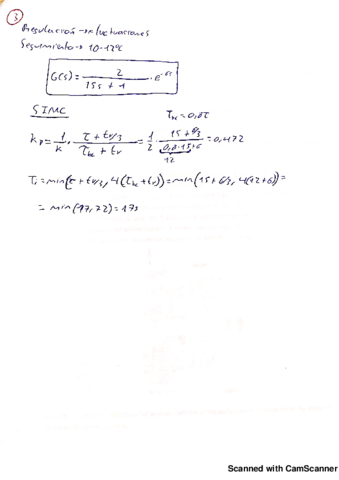 ③
Regulación → fluctuaciones
Seguimiento → 10-12ºC
G(s) = 2 / (15s + 1) · e^-6s
SIMC
Tbc = 0,8τ
Kp = 1/K · (τ + tr/3) / (τbc + tr) = 1/2 · (15 + 6/3) / (0,8·15 + 6) = 0,472
12
Ti = min(τ + tr/3, 4(τbc + tr)) = min(15 + 6/3, 4(12+6)) =
= min(17, 72) = 17s
Scanned with CamScanner